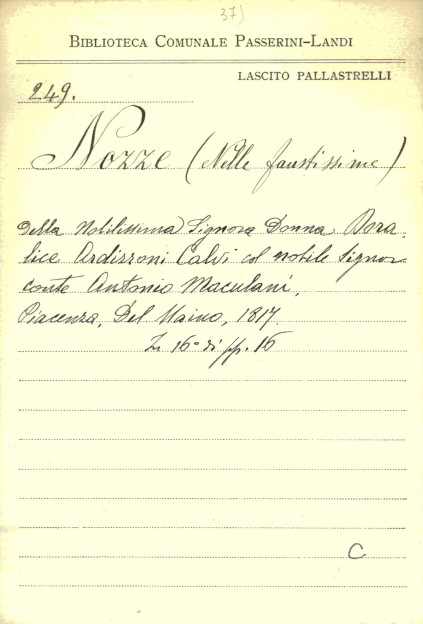 37)
BIBLIOTECA COMUNALE PASSERINI-LANDI
LASCITO PALLASTRELLI
249.
Nozze (Nelle faustissime)
della nobilissima Signora Donna Dora-
lice Ardizzoni Calvi col nobile signor
conte Antonio Maculani,
Piacenza, Del Maino, 1817.
In 16° di pp. 16
C